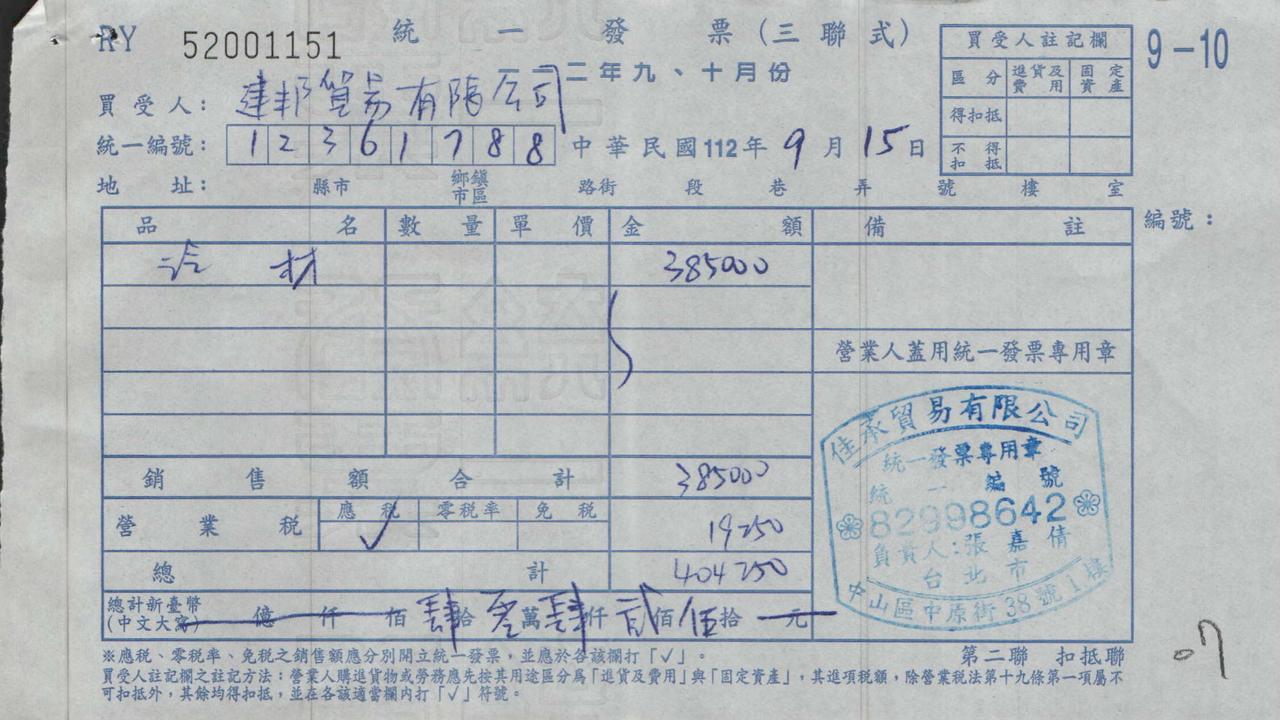 RY 52001151 統一發票(三聯式)
一一二年九、十月份
9-10
買受人註記欄
區分 進貨及費用 固定資產
得扣抵
不得扣抵
買受人: 建邦貿易有限公司
統一編號: 12361788 中華民國112年9月15日
地址: 縣市 鄉鎮市區 路街 段 巷 弄 號 樓 室
品名 數量 單價 金額 備註 編號:
材 385000
營業人蓋用統一發票專用章
銷售額合計 385000
營業稅 應稅 零稅率 免稅 19250
✓
總計 404250
總計新臺幣(中文大寫) 億 仟 佰 肆拾 零萬 肆仟 貳佰 伍拾 元
佳承貿易有限公司
統一發票專用章
統一編號
82998642
負責人:張嘉倩
台北市
中山區中原街38號1樓
※應稅、零稅率、免稅之銷售額應分別開立統一發票,並應於各該欄打「✓」。
第二聯 扣抵聯
買受人註記欄之註記方法:營業人購進貨物或勞務應先按其用途區分為「進貨及費用」與「固定資產」,其進項稅額,除營業稅法第十九條第一項屬不
可扣抵外,其餘均得扣抵,並在各該適當欄內打「✓」符號。
07